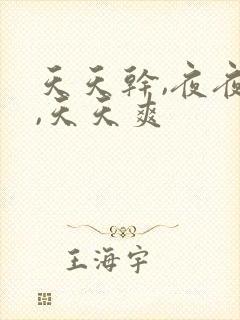 天天幹,夜夜
,天天爽
王海宇